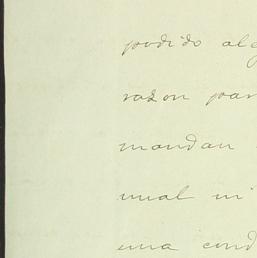 podido alg
razon par
mandan
unal ni
una cond